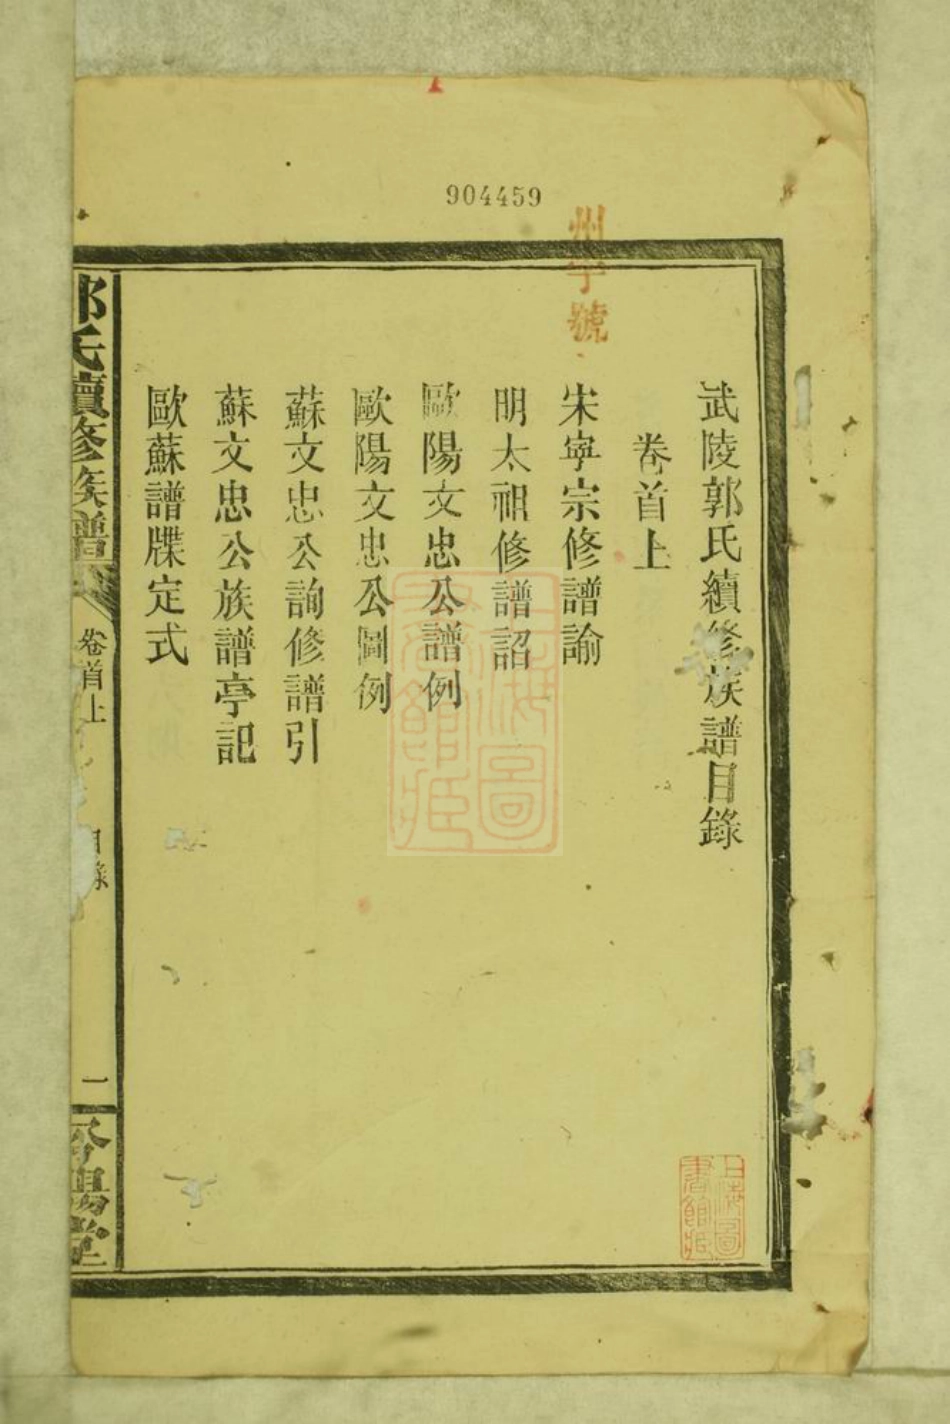 904459
州字號
武陵郭氏續修族譜目錄
卷首上
宋寧宗修譜諭
明太祖修譜詔
歐陽文忠公譜例
歐陽文忠公圖例
蘇文忠公詢修譜引
蘇文忠公族譜亭記
歐蘇譜牒定式
郭氏續修族譜
卷首上
目錄
二
汾陽堂
上海圖書館藏
上海圖書館藏